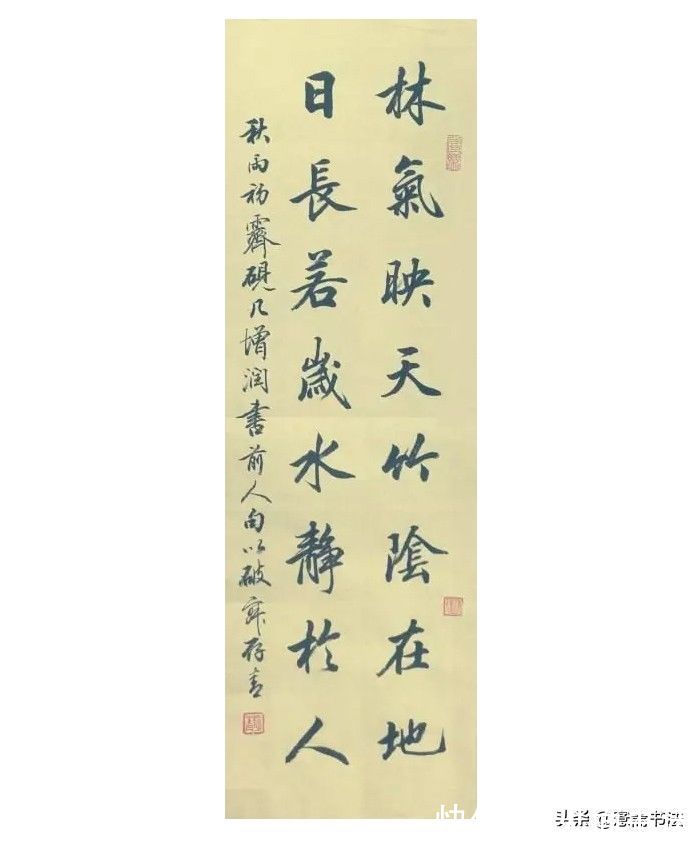 林氣映天竹陰在地
日長若歲水靜於人
秋雨初霽硯几增潤書前人句以破寂存青
头条@
书法